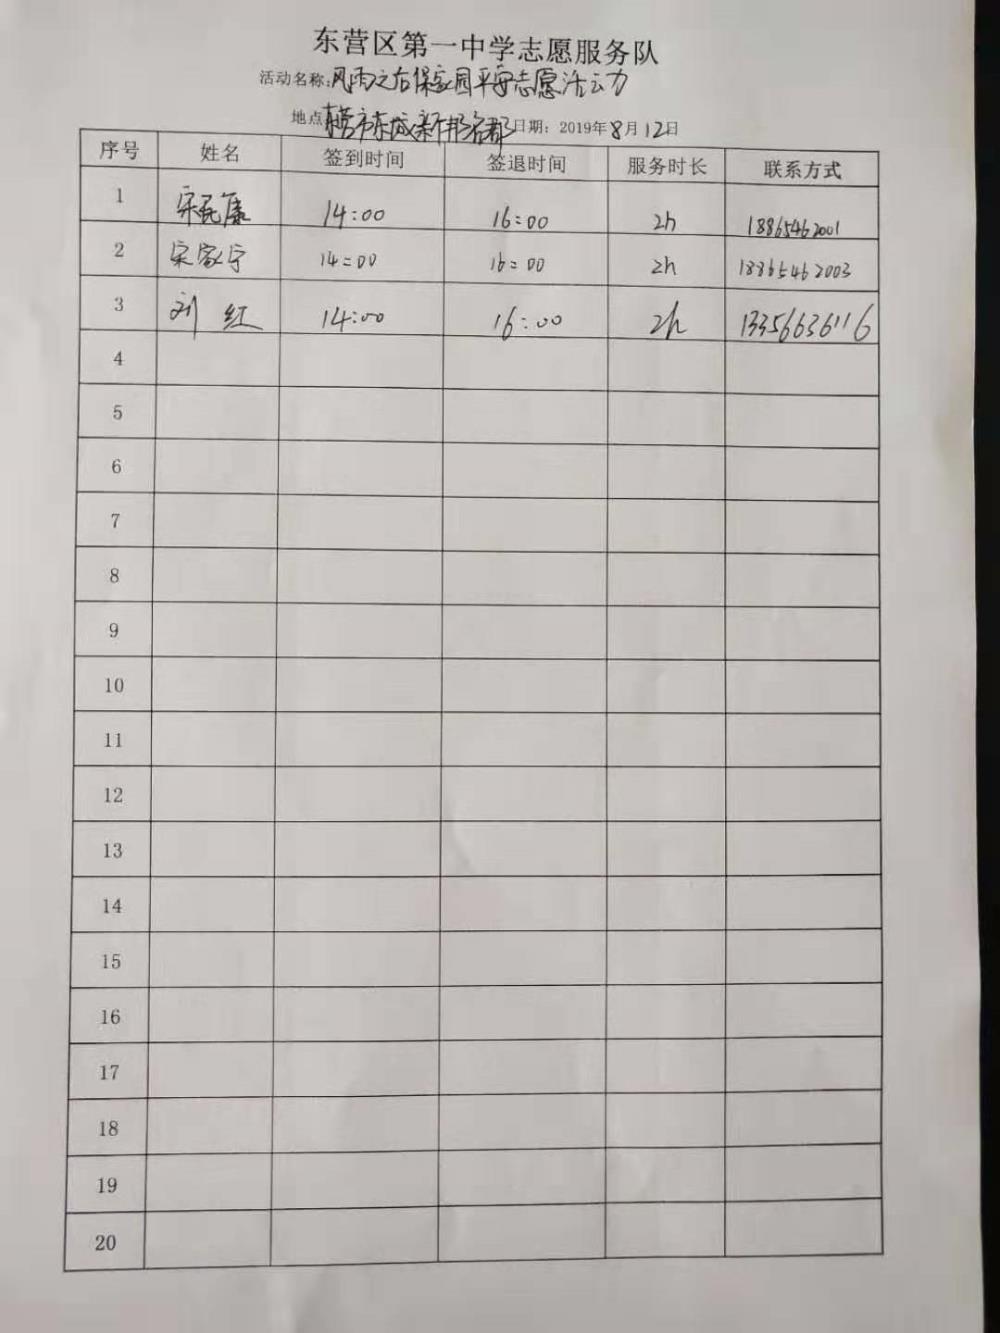 东营区第一中学志愿服务队
活动名称:风雨之后保家园平安志愿活动
地点:东营市东城新邦名都 日期：2019年8月12日
序号 姓名 签到时间 签退时间 服务时长 联系方式
1 宋民康 14:00 16:00 2h 18865462001
2 宋家宁 14:00 16:00 2h 18865462003
3 刘红 14:00 16:00 2h 13356636116
4
5
6
7
8
9
10
11
12
13
14
15
16
17
18
19
20